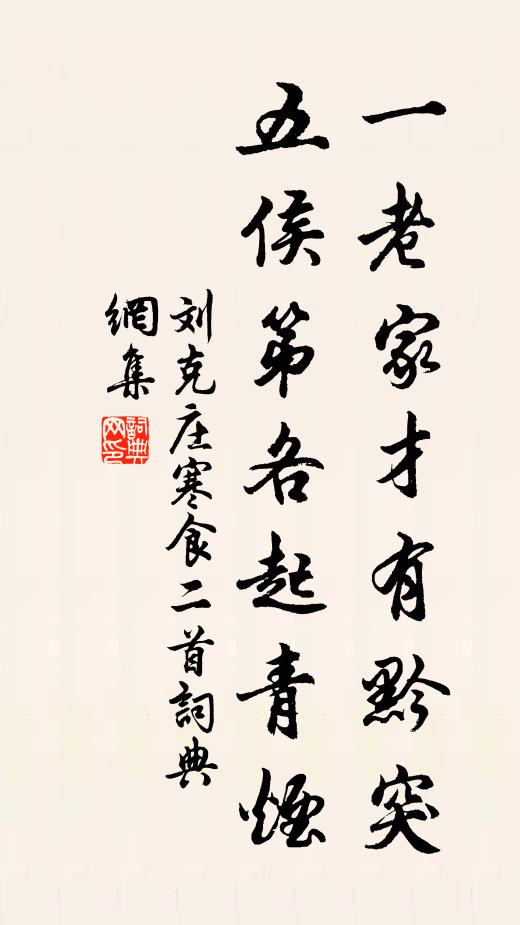 一老家才有黔突
五侯第各起青煙
刘克庄寒食二首詞典
網集
詞典网印